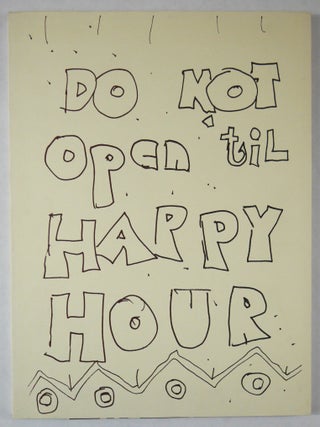 DO NOT
Open til
HAPPY
HOUR